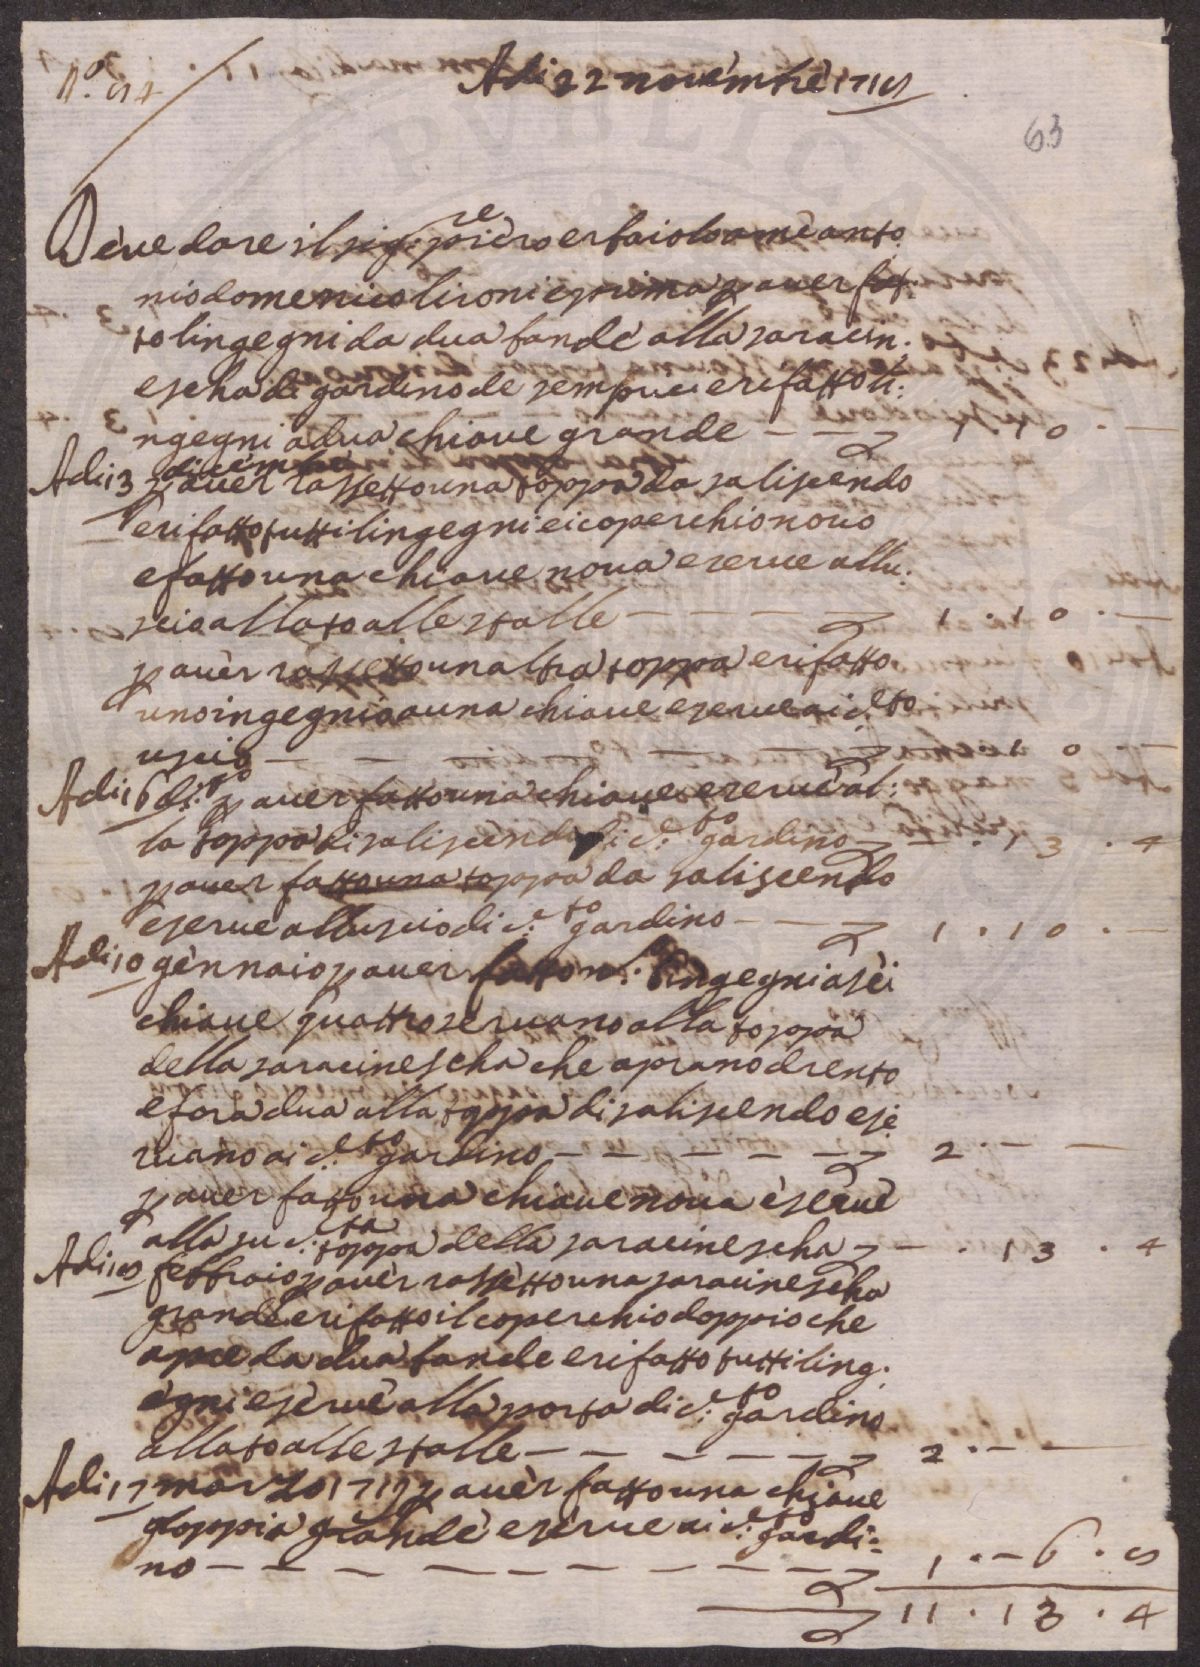 N.o 84
Adi 22 novembre 1718
63
Deve dare il sig.re piero erbaiolo a me anto
nio domenico lironi e prima p aver fat
to lingegni da dua bande alla saracin:
escha di gardino de sempici e rifatto li:
ngegni a dua chiave grande — — 1 . 10 . —
Adi 13 dicembre
p aver rassetto una toppa da saliscendo
e rifatto tutti lingegni ei coperchio novo
e fatto una chiave nova e serve allu:
scio allato alle stalle — — — — 1 . 10 . —
p aver rassetto una ltra toppa e rifatto
uno ingegnio a una chiave e serve ai d.to
uscio — — — — — 1 0 . —
Adi 16 d.to p aver fatto una chiave e serve al:
la toppa di saliscendo di d.to gardino — — . 13 . 4
p aver fatto una toppa da saliscendo
e serve alluscio di d.to gardino — — 1 . 10 . —
Adi 10 gennaio p aver fatto n.o 6 ingegni a sei
chiave quattro servano alla toppa
della saracinescha che aprano drento
e fora dua alla toppa di saliscendo e se
rvano ai d.to gardino — — — — — 2 . — —
p aver fatto una chiave nova e serve
alla su d.ta toppa della saracinescha — — . 13 . 4
Adi 18 febbraio p aver rassetto una saracinescha
grande e rifatto il coperchio doppio che
apre da dua bande e rifatto tutti ling:
egni e serve alla porta di d.to gardino
allato alle stalle — — — — — 2 . — —
Adi 17 marzo 1719 p aver fatto una chiave
doppia grande e serve ai d.to gardi:
no — — — — — — — — — 1 . — 6 . 8
11 . 13 . 4